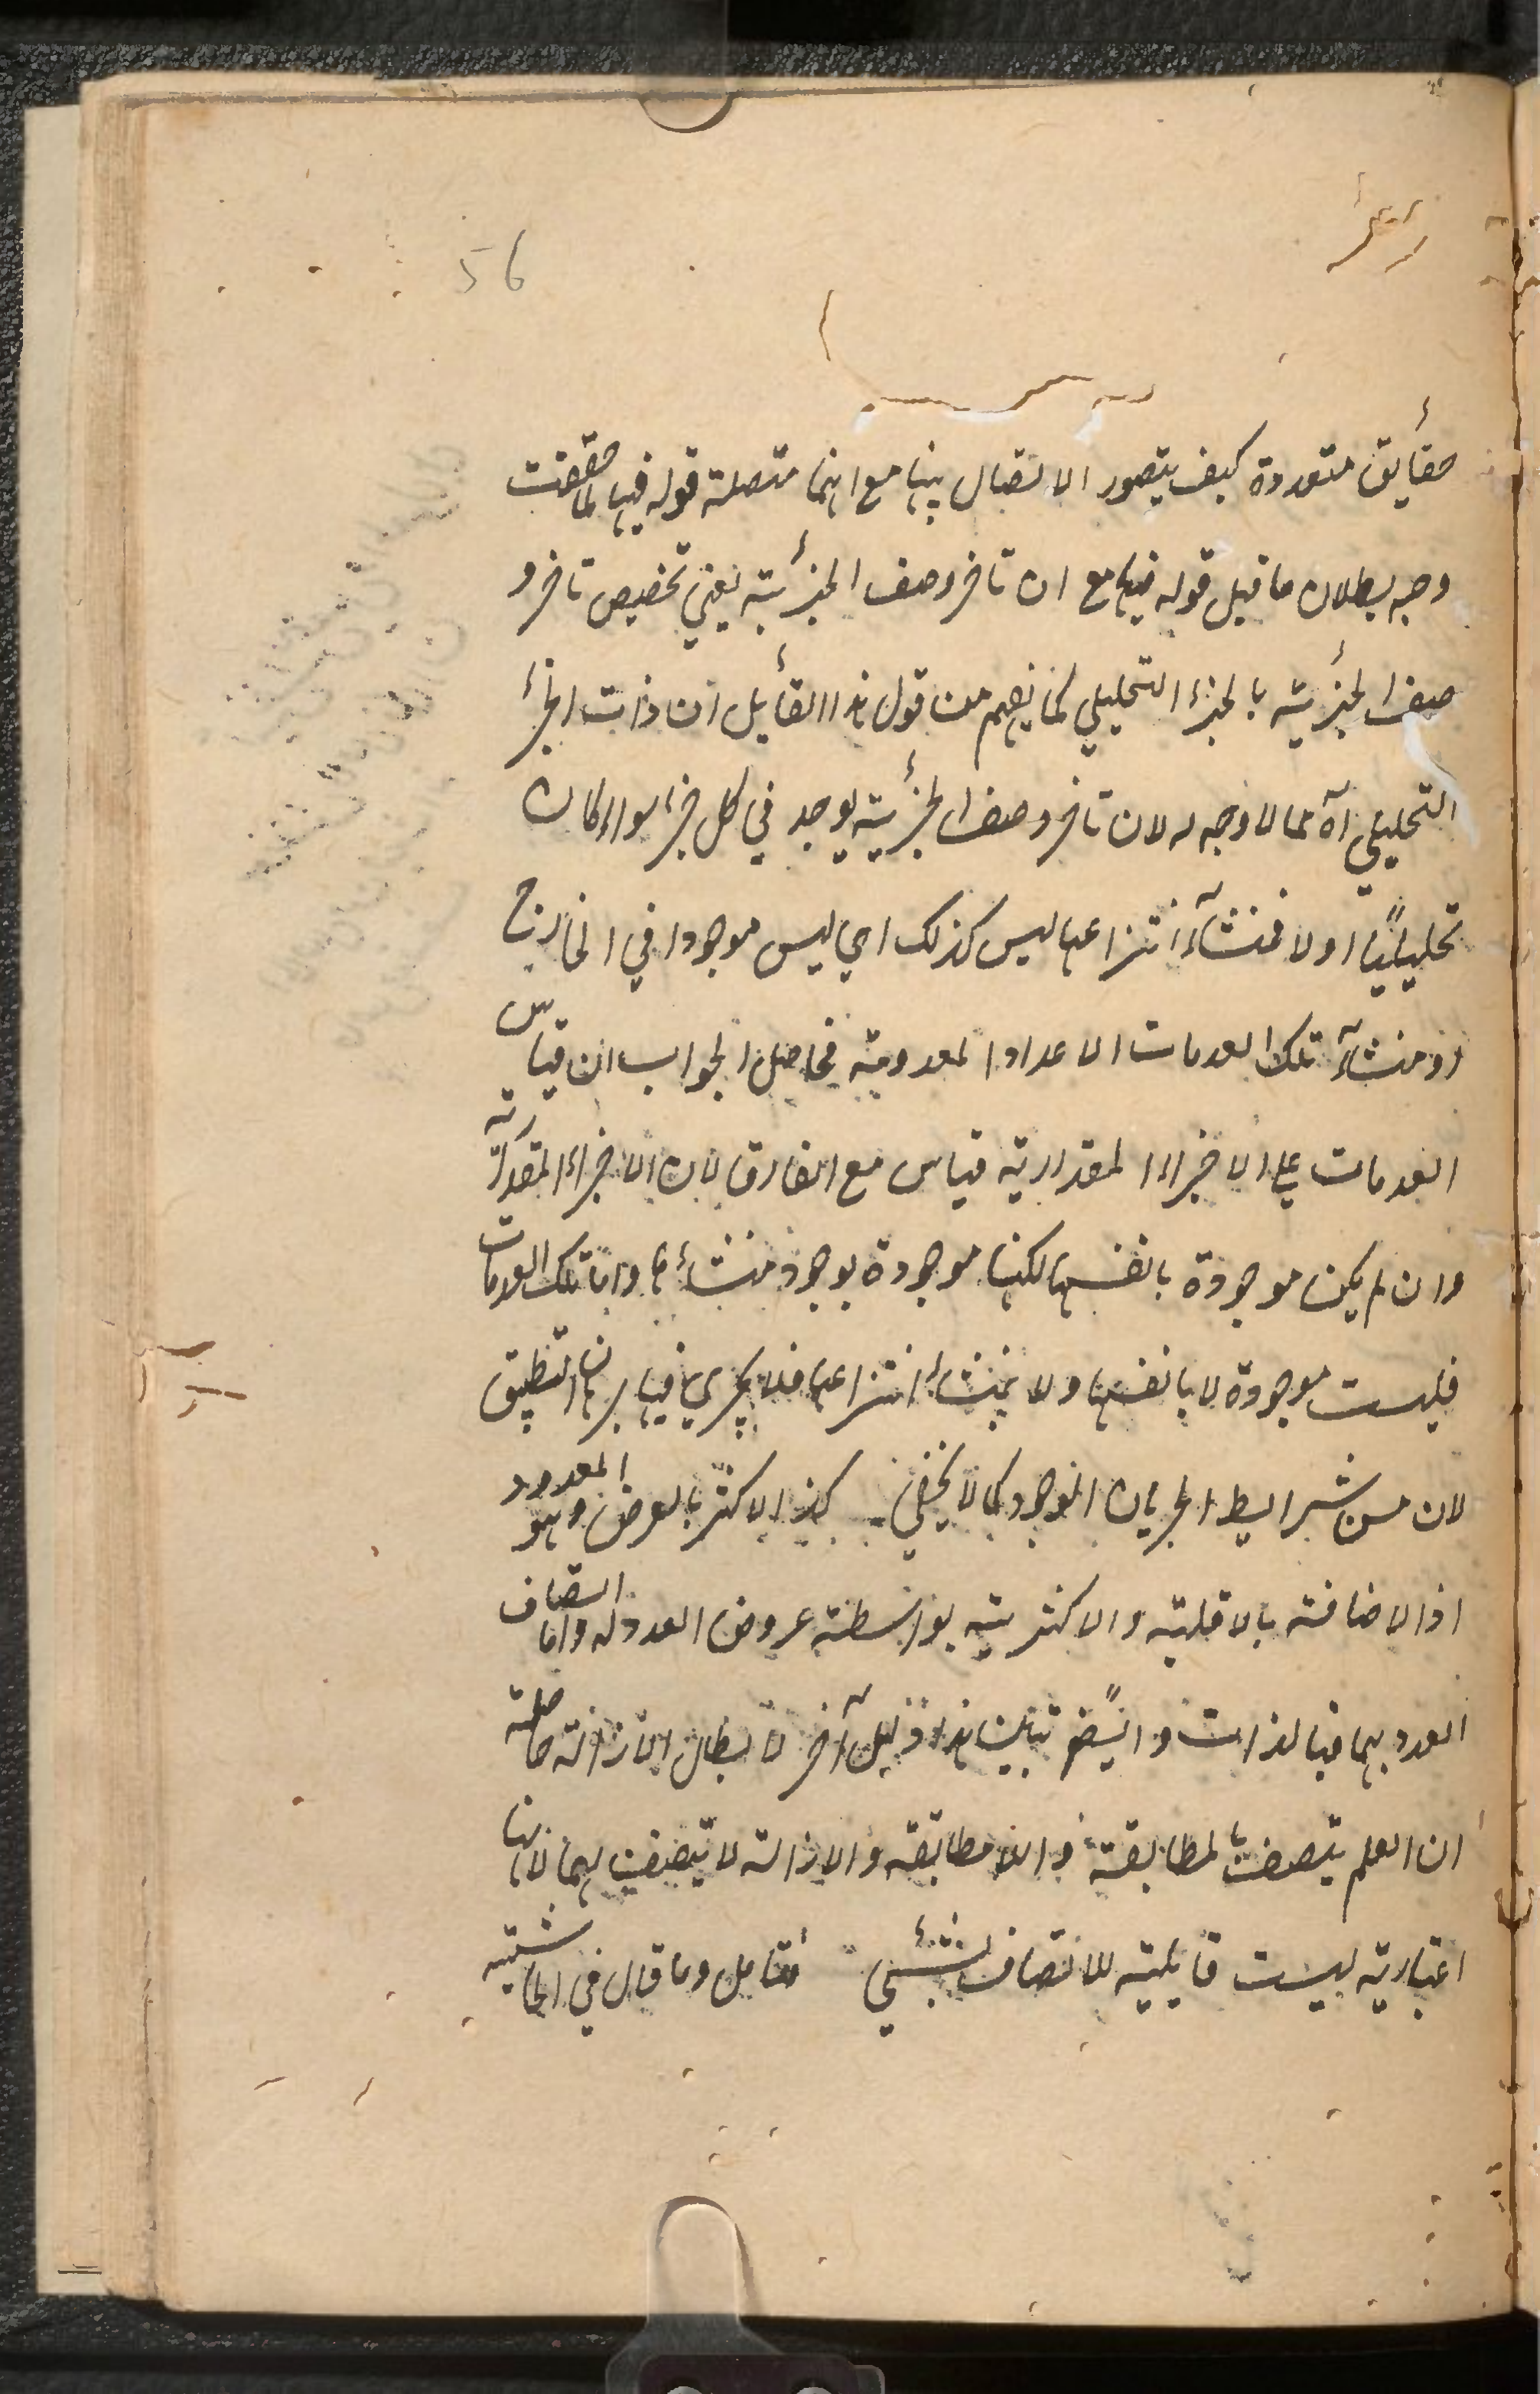 56
حقائق متعددة كيف يتصور الاتصال بينها مع انها متصلة قوله فيها لما حققت
وجه بطلان ما قيل قوله فيها مع ان تاخر وصف الجزئية يعني تخصيص تاخر و
صف الجزئية بالجزء التحليلي كما يفهم من قول هذا القائل ان ذات الجزء
التحليلي آه مما لا وجه له لان تاخر وصف الجزئية يوجد في كل جزء سواء كان
تحليليًا اولا فمنشأ انتزاعها ليس كذلك اي ليس موجودا في الخارج
اذ منشأ تلك العدمات الاعداد المعدومة فحاصل الجواب ان قياس
العدمات على الاجزاء المقدارية قياس مع الفارق لان الاجزاء المقدارية
وان لم يكن موجودة بانفسها لكنها موجودة بوجود منشأها واما تلك العدمات
فليست موجودة لا بانفسها ولا بمنشأ انتزاعها فلا يجري فيها برهان التطبيق
لان من شرايط الجريان الوجود كما لا يخفى كذا الاكثر بالعرض وهو المعدود
اذ الاضافة بالاقلية والاكثرية بواسطة عروض العدد له واما اتصاف
العدد بهما فبالذات وايضًا تبين هذا دليل آخر لابطال الازالة حاصله
ان العلم يتصف بالمطابقة واللا مطابقة والازالة لا يتصف بهما لانها
اعتبارية ليست قابلية للاتصاف بشئي فتامل وما قال في الحاشية